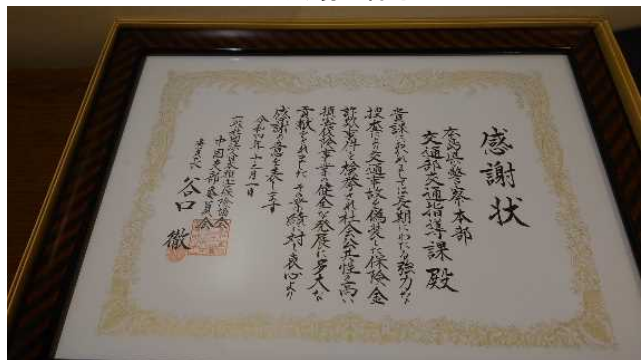 感謝状
広島県警察本部
交通部交通指導課 殿
貴課におかれましては長期にわたる強力な
捜査により交通事故を偽装した保険金
詐欺事件を検挙され社会公共性の高い
損害保険事業の健全な発展に多大な
貢献をされました その功績に対し衷心より
感謝の意を表します
令和四年十二月一日
一般社団法人日本損害保険協会
中国支部委員会
委員長 谷口 徹